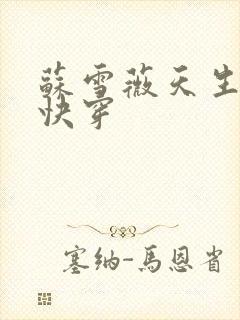 蘇雪薇天生
快穿
塞纳-馬恩省